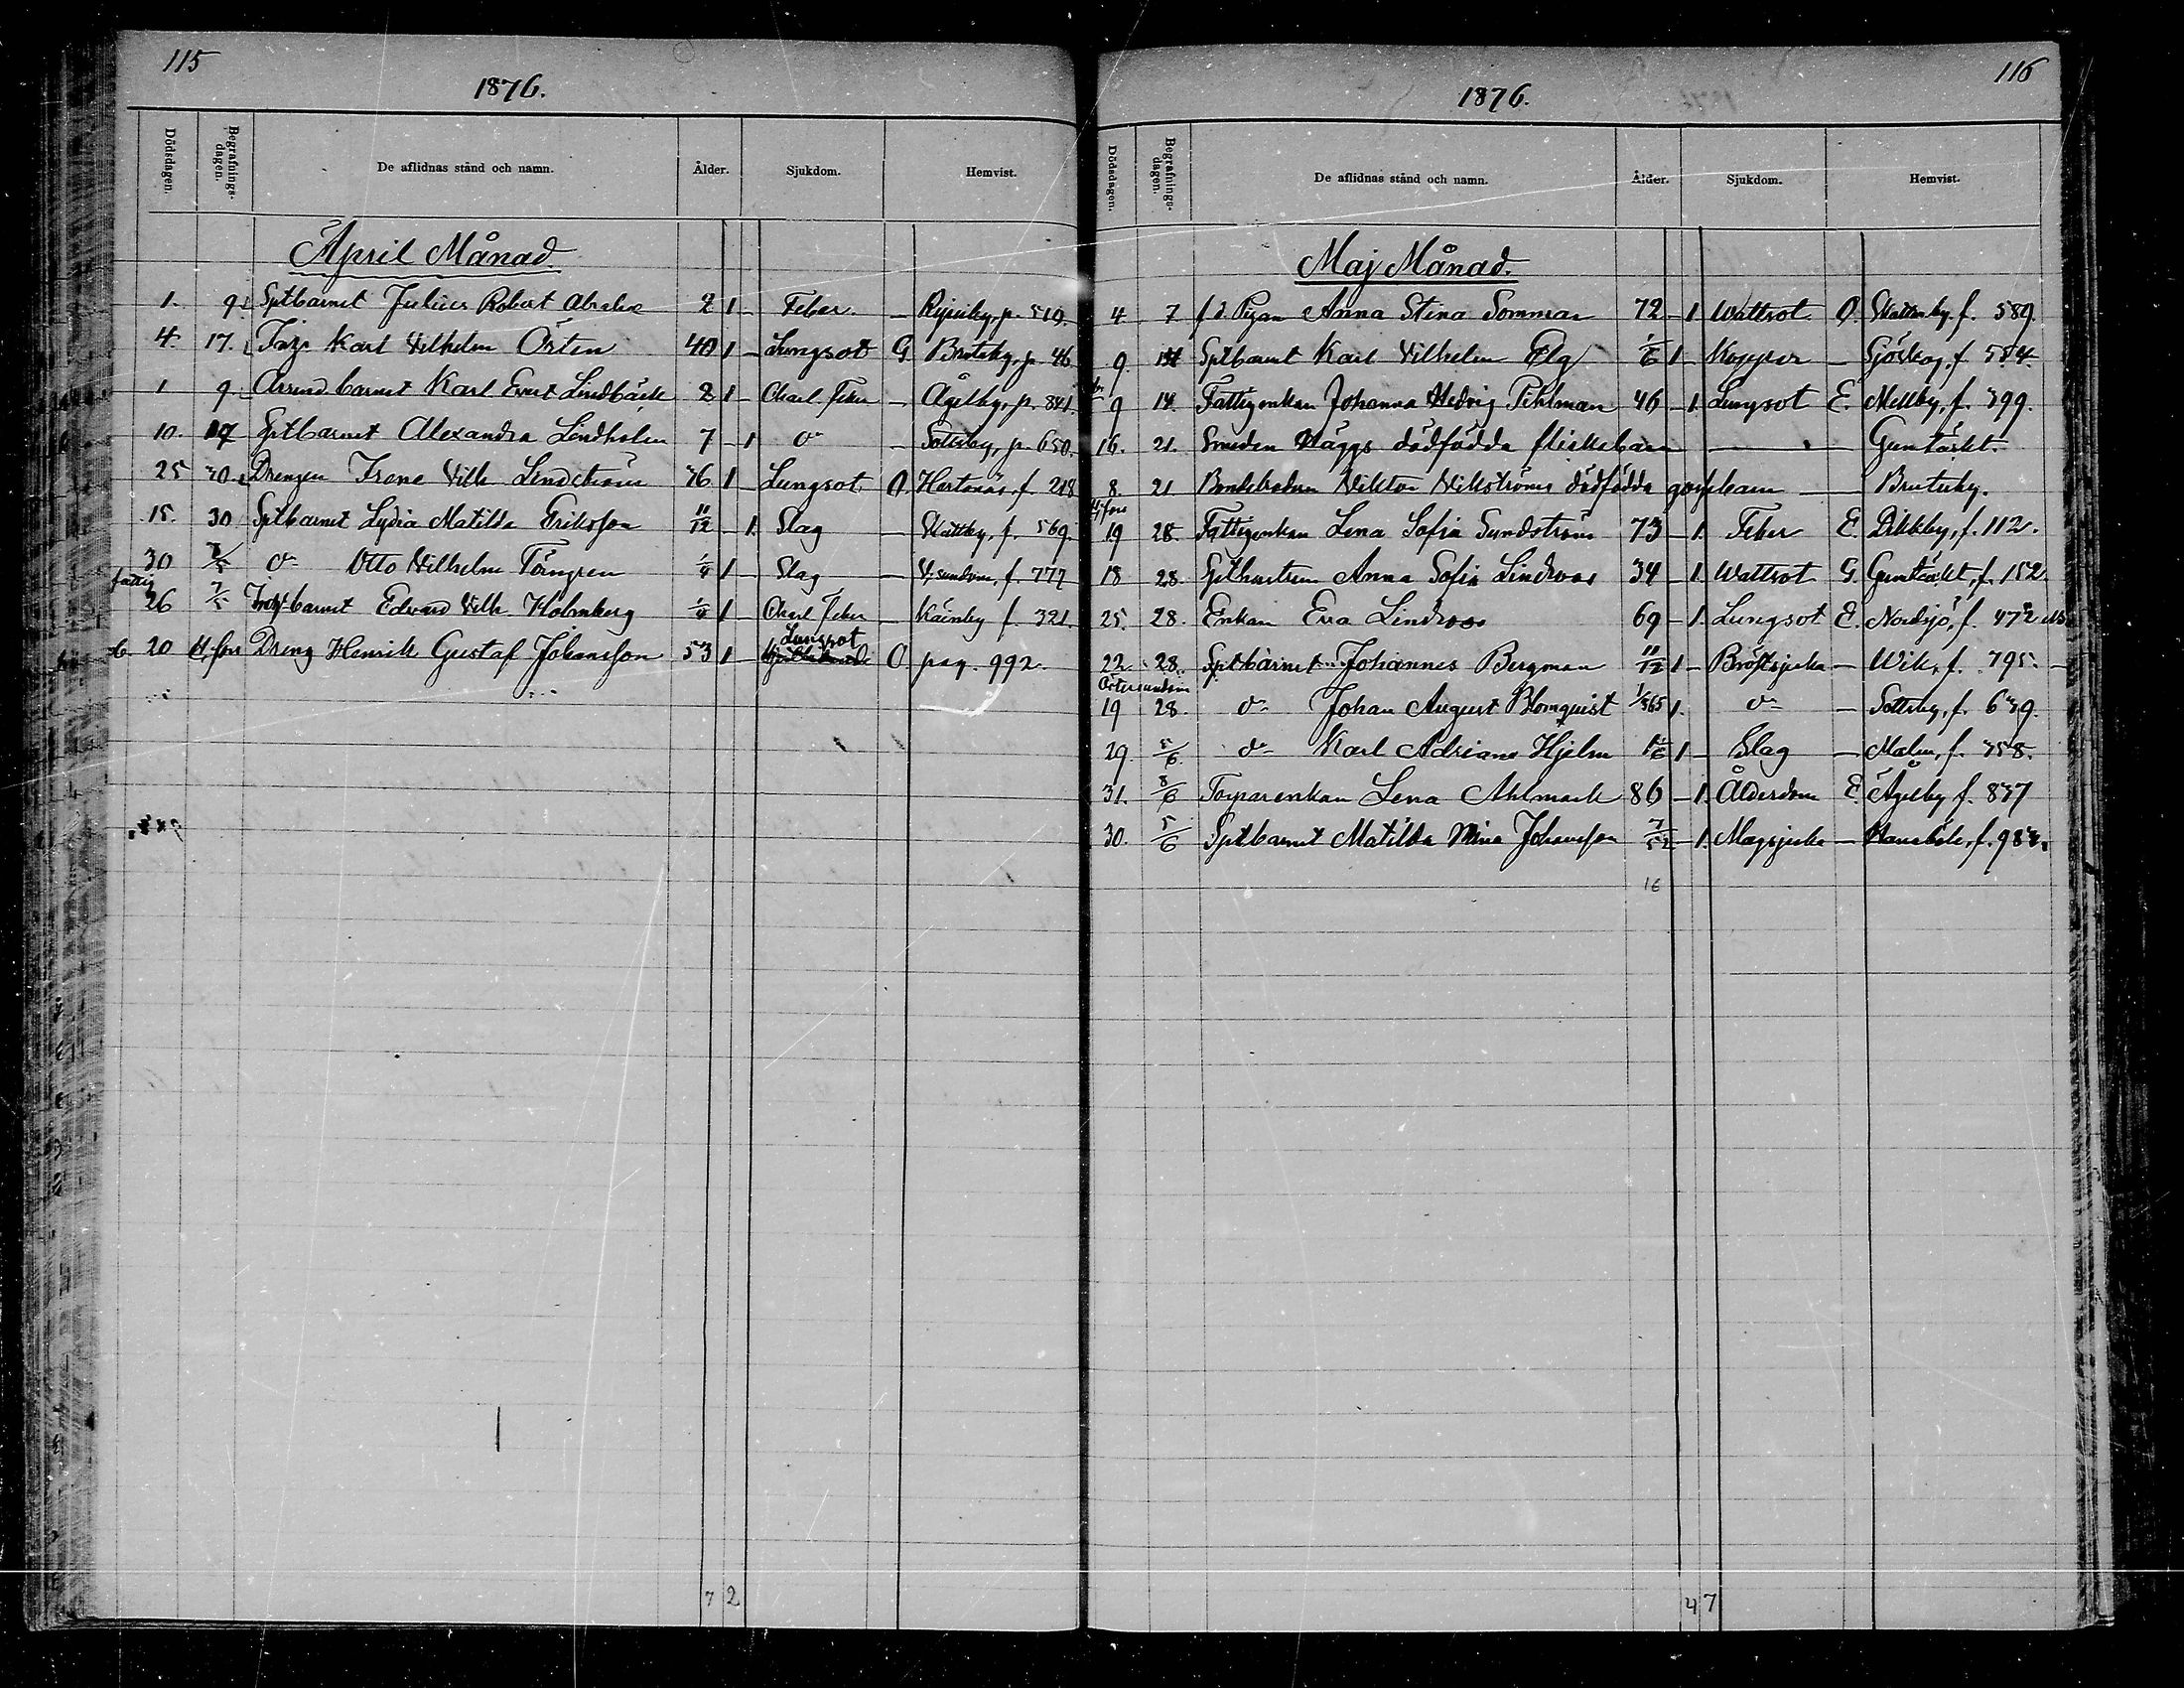 115
1876.
Dödsdagen. Begrafningsdagen. De aflidnas stånd och namn. Ålder. Sjukdom. Hemvist.
April Månad.
1. 9 Sptbarnet Julius Robert 2 1 - Feber - p. 510.
4. 17. Karl Vilhelm Östen 40 1 - Lungsot G. p. 46
1 9. Arrend.barnet Karl Evert Lindbäck 2 1 - Feber - p. 841.
10. 17 Sptbarnet Alexandra Lindholm 7 - 1 do - Sottsby, p. 650.
25 30. Drengen Vilh. Lindström 36 1 Lungsot O. Hertonäs, f. 218
15. 30 Sptbarnet Lydia Matilda Eriksson 11/12 - 1. Slag - f. 569.
30 7/5 do Otto Vilhelm Törngren 1/4 1 - Slag - f. 777
26 7/5 barnet Edvard Vilh. Holmberg 1/4 1 - Feber - f. 321.
20 H.fors Dreng Henrik Gustaf Johansson 53 1 - Lungsot O pag. 992
7 2
116
1876.
Dödsdagen. Begrafningsdagen. De aflidnas stånd och namn. Ålder. Sjukdom. Hemvist.
Maj Månad.
4. 7 f.d. Pigan Anna Stina Sommar 72 - 1 Wattsot O. f. 589.
9. 14 Sptbarnet Karl Vilhelm Elg 1/6 1 Koppor - Sjöskog, f. 554.
9 14. Fattigenkan Johanna Hedvig Pihlman 46 - 1. Lungsot E. Mellby, f. 399.
16. 21. Smeden Häggs dödfödda flickebarn - Guntäckt.
8. 21 Viktor Vikströms dödfödda gossebarn -
H.fors
19 28. Fattigenkan Lena Sofia Sundström 73 - 1. Feber E. Dikkby, f. 112.
18 28. Anna Sofia Lindroos 34 - 1. Wattsot G. Guntäckt, f. 152
25. 28. Enkan Eva Lindroos 69 - 1. Lungsot E. Nordsjö, f. 472
22. 28. Sptbarnet Johannes Bergman 11/12 1 - Bröstsjuka - Wik, f. 795. -
Östersundom
19 28. do Johan August Blomquist 1/365 1. do - Sottsby, f. 639.
29. 5/6. do Karl Adrian Hjelm 1 1/6 1 - Slag - Malm, f. 758.
31. 8/6 Torparenkan Lena Ahlmark 86 - 1. Ålderdom E. f. 837
30. 5/6 Sptbarnet Matilda Mina Johansson 7/52 - 1. Magsjuka - Hanaböle, f. 983.
16
4 7